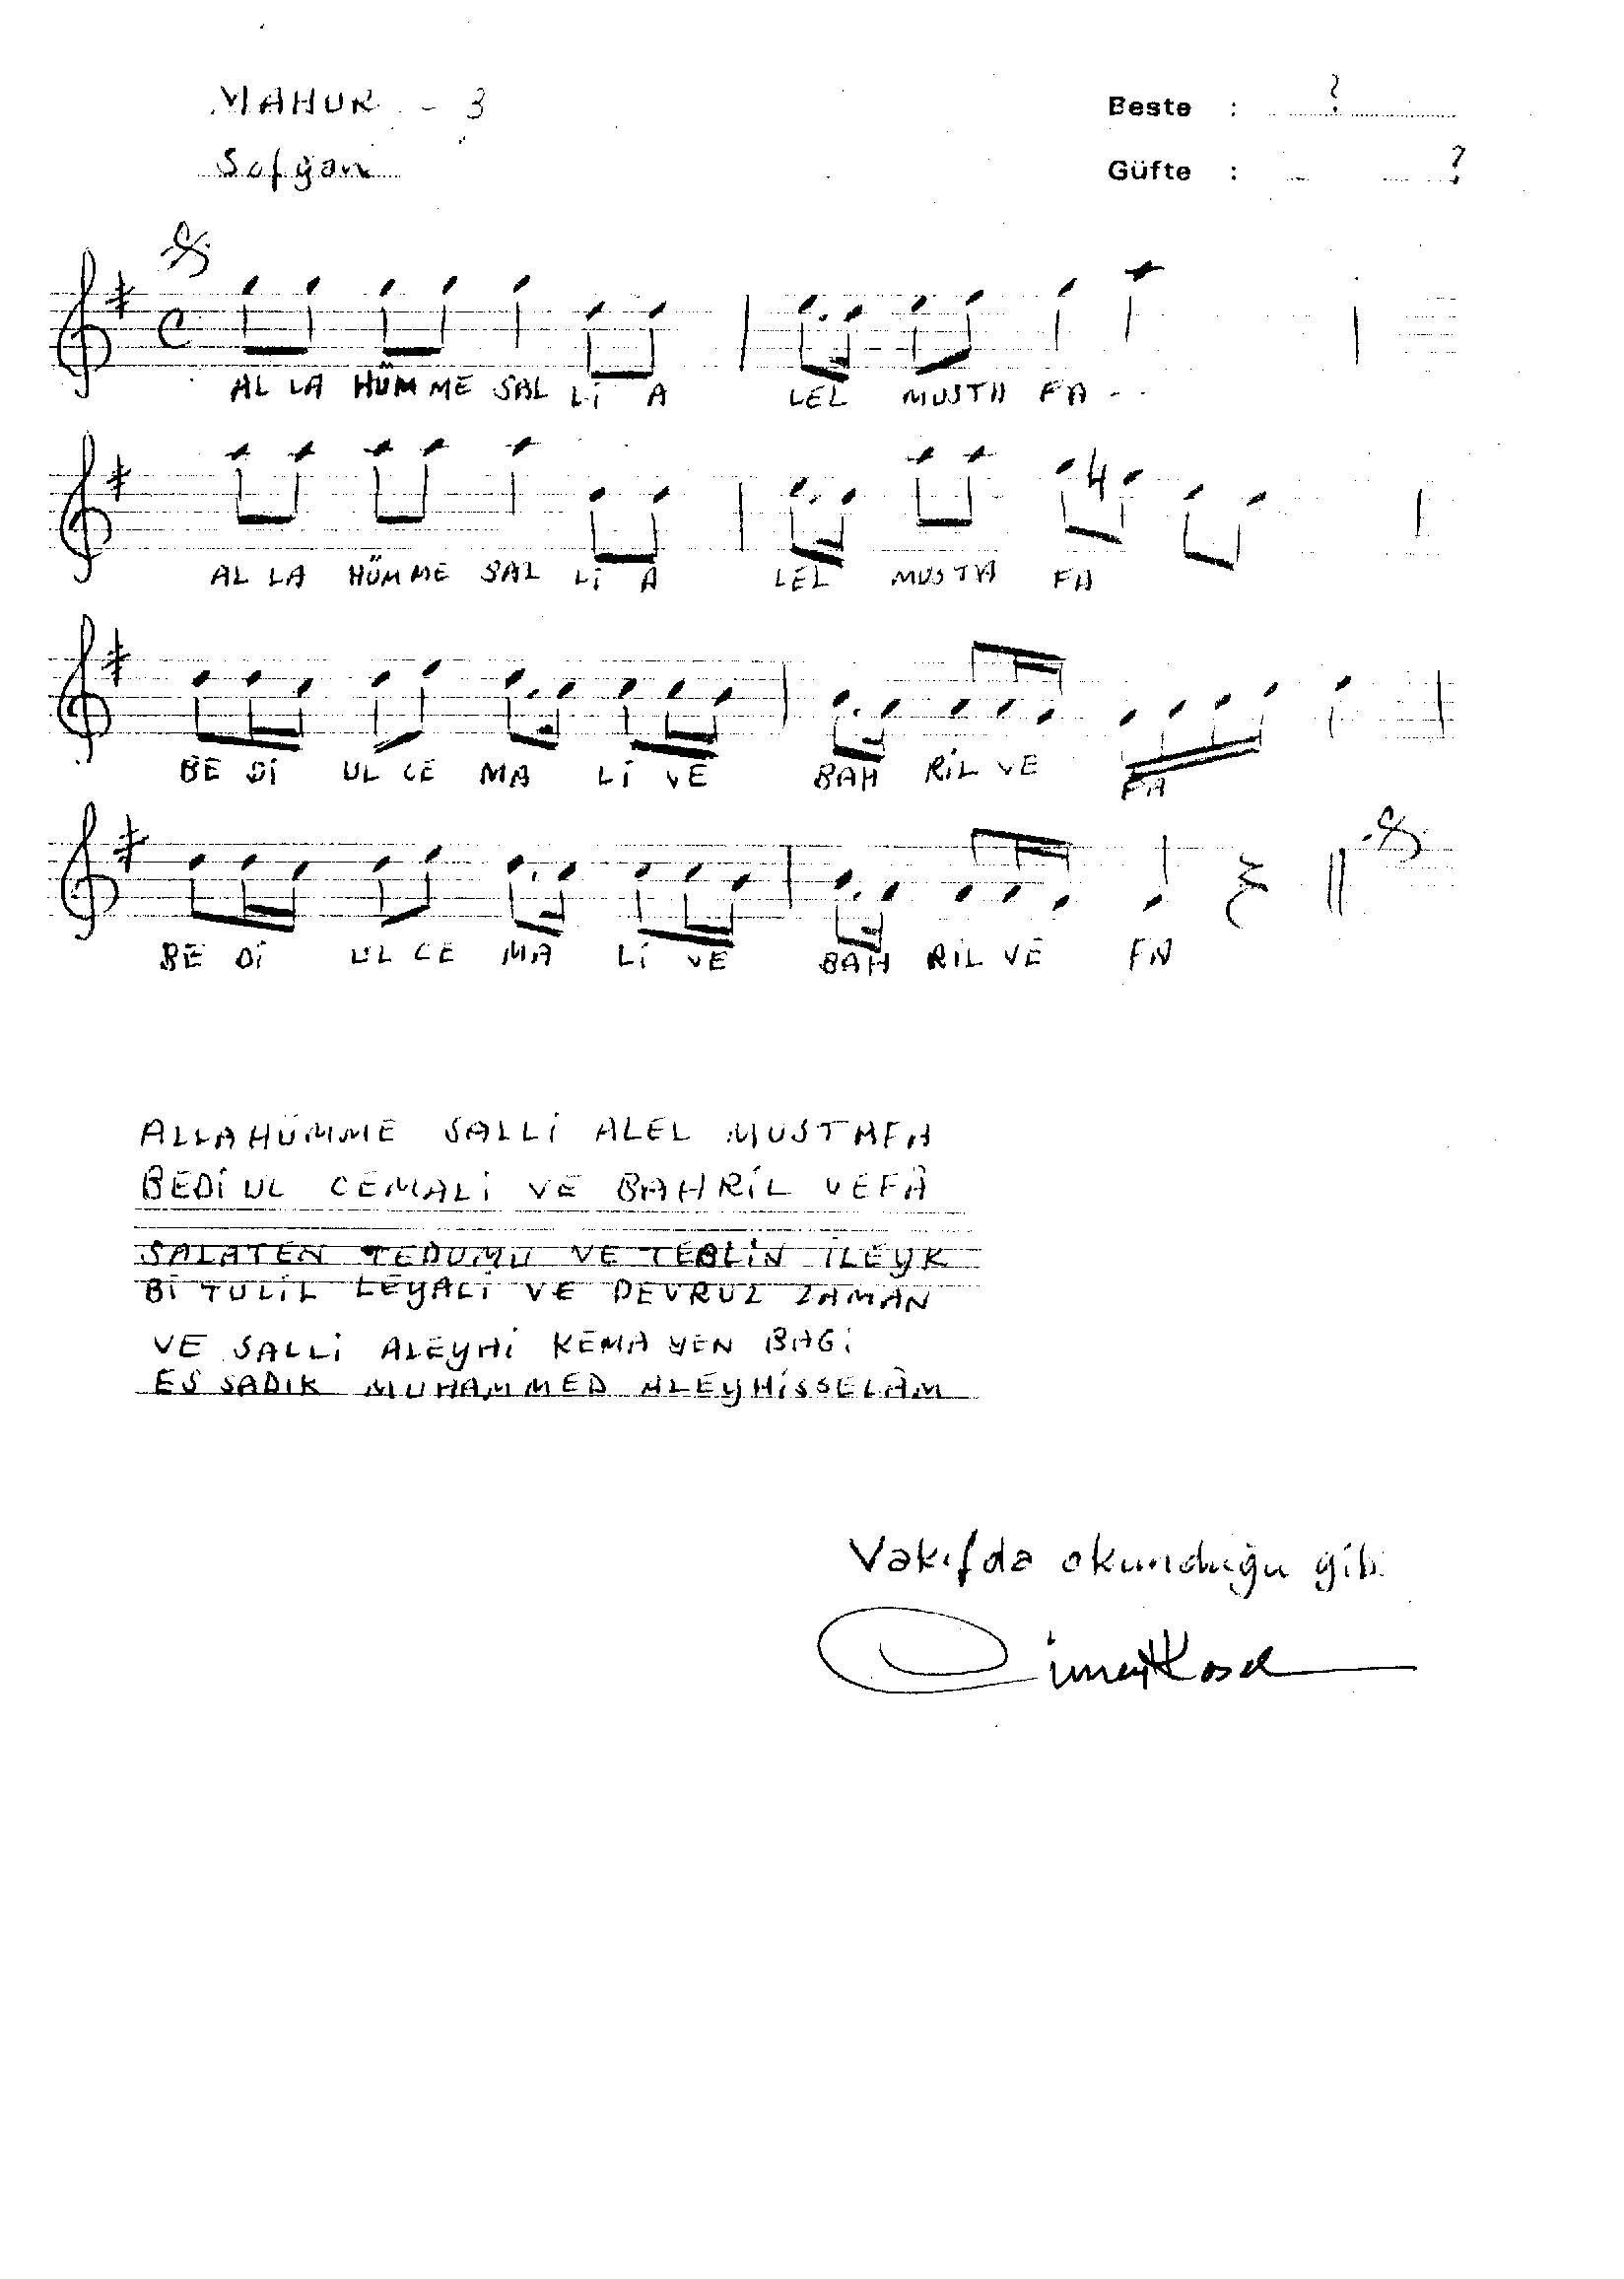 MAHUR - 3
Beste : ?
Sofyan
Güfte : ?
AL LA HÜM ME SAL Lİ A LEL MUSTA FA - -
AL LA HÜM ME SAL Lİ A LEL MUSTA FA
BE Dİ UL CE MA Lİ VE BAH RİL VE FA
BE Dİ UL CE MA Lİ VE BAH RİL VE FA
ALLAHÜMME SALLİ ALEL MUSTAFA
BEDİ UL CEMALİ VE BAHRİL VEFÂ
SALATEN TEDUMU VE TEBLİN İLEYK
Bİ TULİL LEYALİ VE DEVRUZ ZAMAN
VE SALLİ ALEYHİ KEMA YEN BAGİ
ES SADIK MUHAMMED ALEYHİSSELÂM
Vakıfda okunduğu gibi